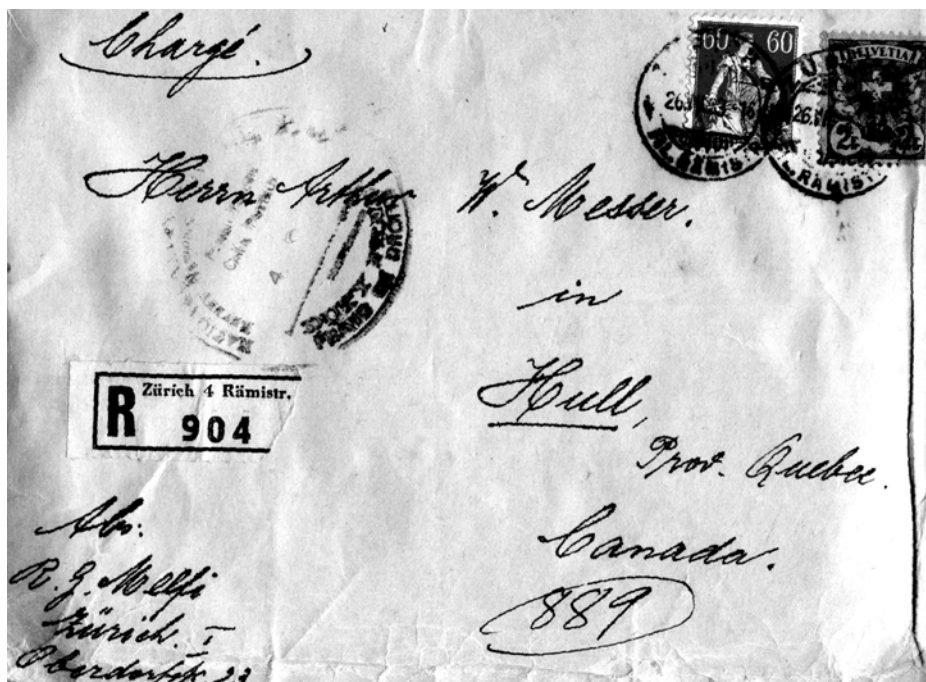 Chargé.
60 60
HELVETIA
2
Herrn Arthur W. Messer.
in
Hull,
Prov. Quebec.
Canada.
889
R Zürich 4 Rämistr.
904
Abs:
R. G. Melfi
Zürich. I